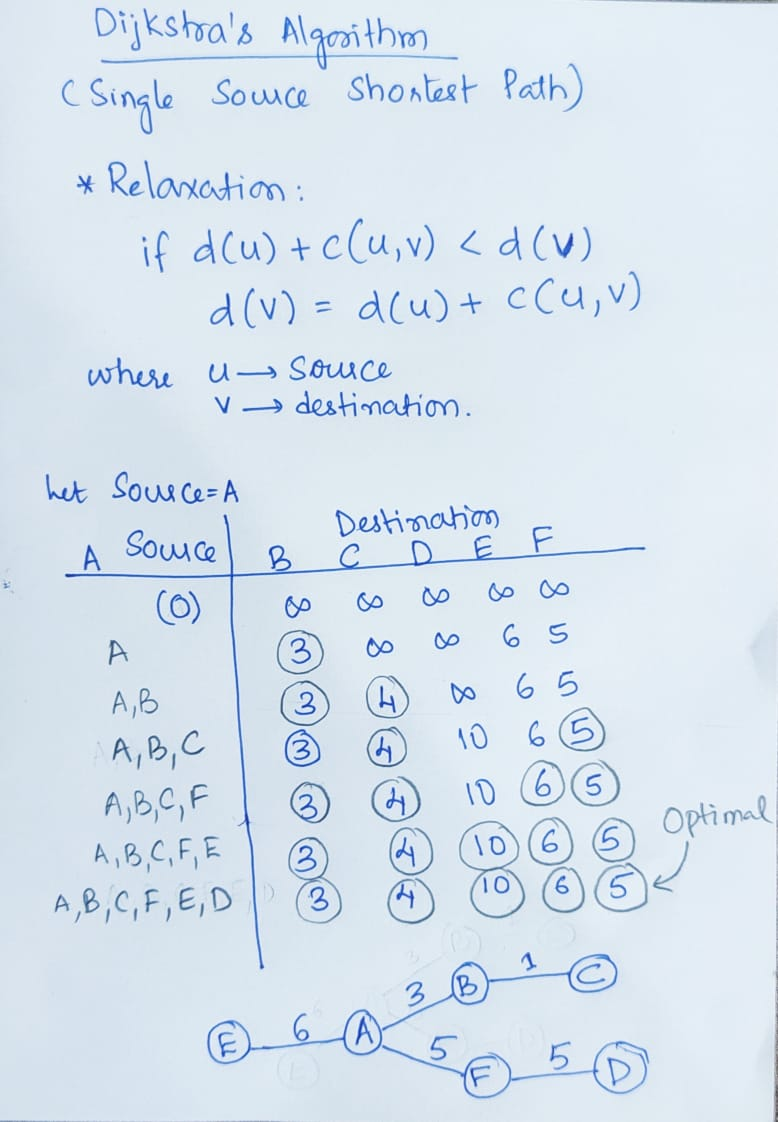 Dijkstra's Algorithm
(Single Source Shortest Path)
* Relaxation:
if d(u) + c(u,v) < d(v)
d(v) = d(u) + c(u,v)
where u → source
v → destination.
Let Source = A
Destination
A Source B C D E F
(0) ∞ ∞ ∞ ∞ ∞
A 3 ∞ ∞ 6 5
A,B 3 4 ∞ 6 5
A,B,C 3 4 10 6 5
A,B,C,F 3 4 10 6 5
A,B,C,F,E 3 4 10 6 5
A,B,C,F,E,D 3 4 10 6 5
Optimal
E 6 A 3 B 1 C
5 F 5 D